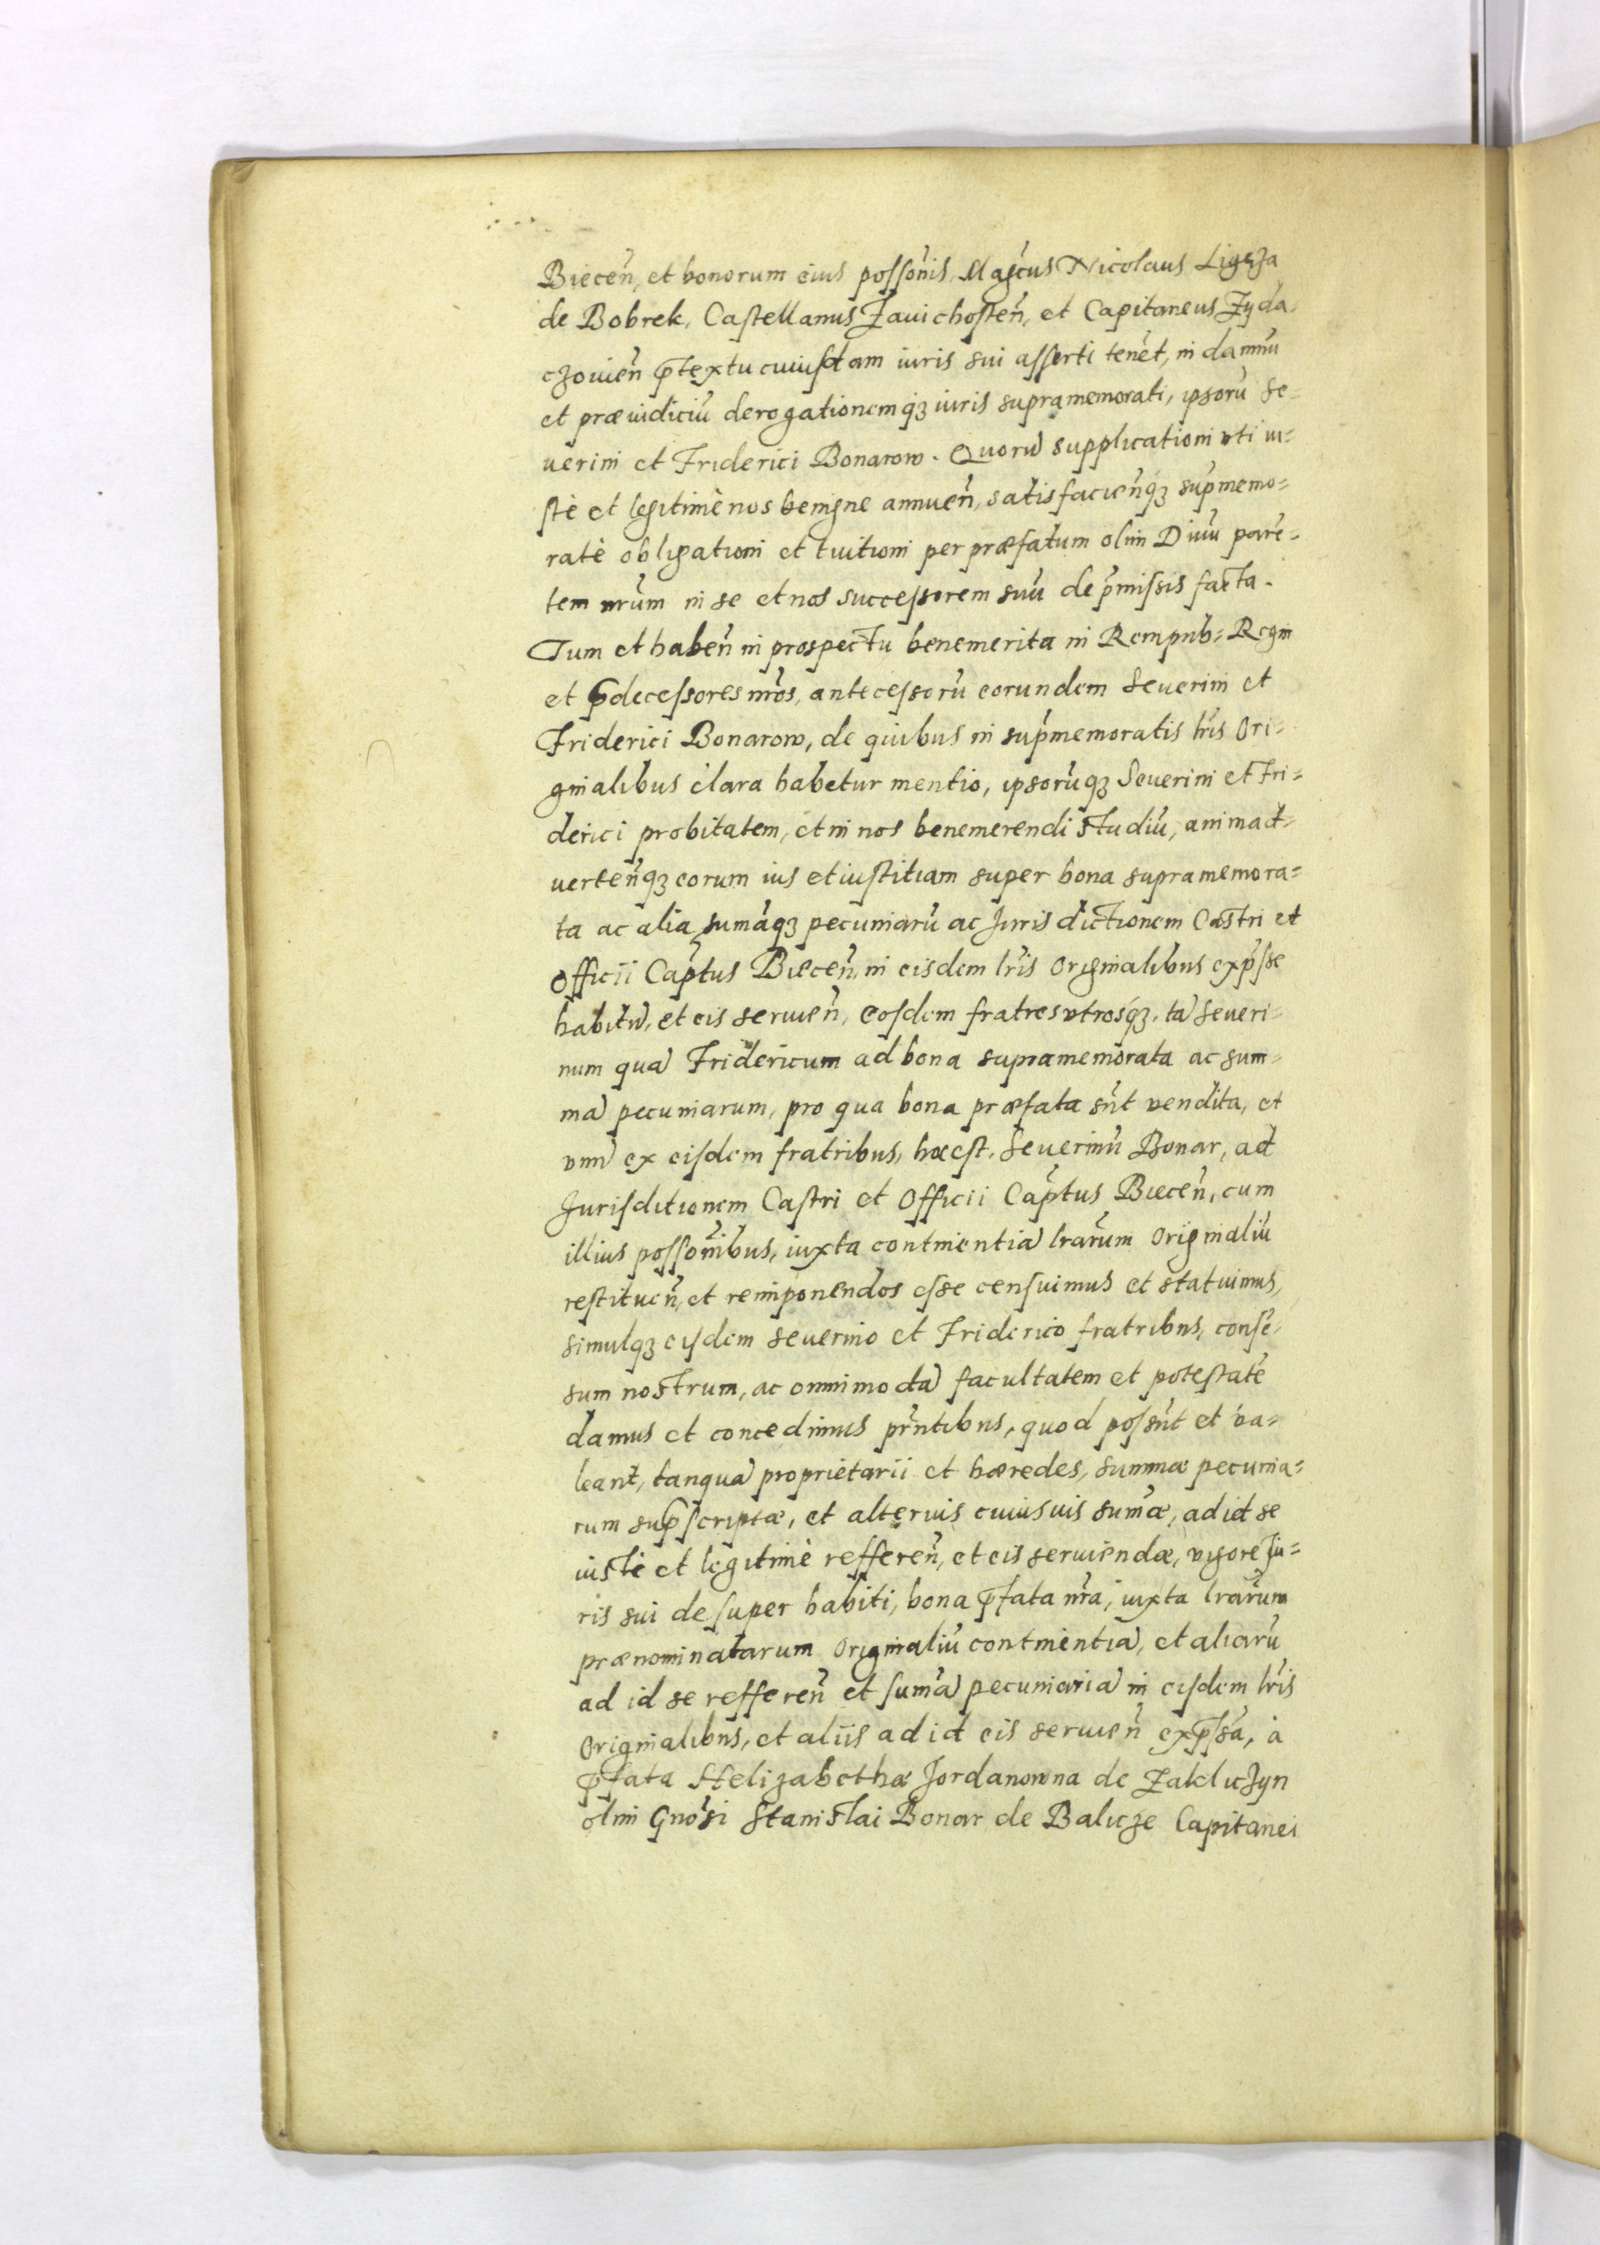 Biecen̄, et bonorum eius possōnis, Mag̃cus Nicolaus Ligęza
de Bobrek, Castellanus Zauichosten̄, et Capitaneus Zyda-
czouien̄ p̄textu cuiusdam iuris sui asserti tenēt, in damnū
et præiudiciū derogationemqꝫ iuris supramemorati, ipsorū Se=
uerini et Friderici Bonarow. Quorū supplicationi vti iu=
stè et legitimè nos benigne annuen̄, satisfacien̄qꝫ sup̄memo=
ratè obligationi et tuitioni per præfatum olim Diuū parē=
tem nr̄um in se et nos successorem suū de p̄missis facta.
Tum et haben̄ in prospectu benemerita in Rempub= Regni
et p̄decessores nr̄os, antecessorū eorundem Seuerini et
Friderici Bonarow, de quibus in sup̄memoratis lr̄is Ori=
ginalibus clara habetur mentio, ipsorūqꝫ Seuerini et Fri=
derici probitatem, et in nos benemerendi studiū, animad=
uerten̄qꝫ eorum ius et iustitiam super bona supramemora=
ta ac alia, sumāqꝫ pecuniarū ac Jurisdictionem Castri et
Officii Cap̄tus Biecen̄, in eisdem lr̄is Originalibus exp̄sse
habitū, et eis seruien̄, eosdem fratres vtrosqꝫ, tā Seueri=
num quā Fridericum ad bona supramemorata ac sum=
mā pecuniarum, pro qua bona præfata sūt vendita, et
vnū ex eisdem fratribus, hoc est, Seuerinū Bonar, ad
Jurisditionem Castri et Officii Cap̄tus Biecen̄, cum
illius possōnibus, iuxta continentiā lr̄arum Originaliū
restituen̄, et reimponendos esse censuimus et statuimus,
simulqꝫ eisdem Seuerino et Friderico fratribus, consē=
sum nostrum, ac omnimodā facultatem et potestatē
damus et concedimus pr̄ntibus, quod possūt et va=
leant, tanquā proprietarii et hæredes, summæ pecunia=
rum sup̄scriptæ, et alterius cuiusuis sum̄æ, ad id se
iustè et legitimè refferen̄, et eis seruiendæ, vigore Ju=
ris sui desuper habiti, bona p̄fata nr̄a, iuxta lr̄arum
prænominatarum Originaliū continentiā, et aliarū
ad id se refferen̄ et sum̄ā pecuniariā in eisdem lr̄is
Originalibus, et aliis ad id eis seruien̄ exp̄ssā, à
p̄fata Helizabethæ Jordanowna de Zakliczyn
olim Gnōsi Stanislai Bonar de Balicze Capitanei